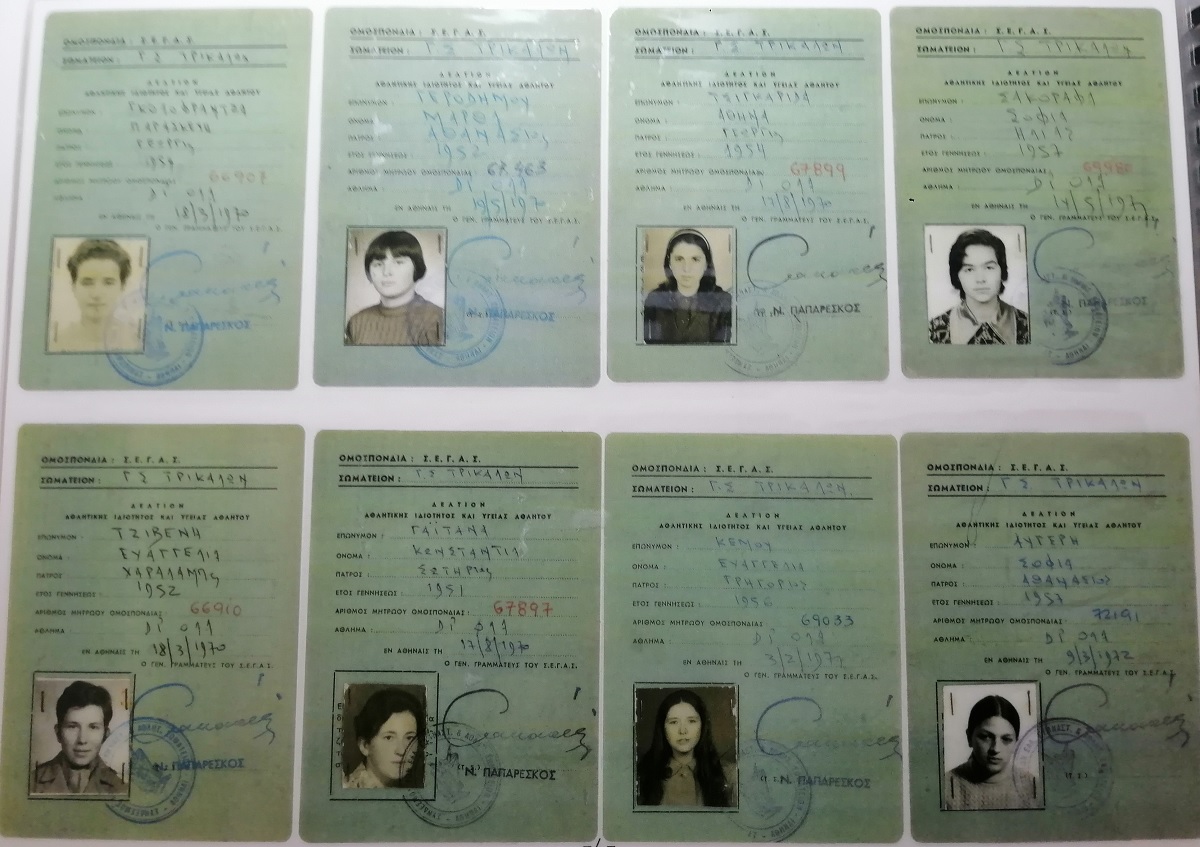 ΟΜΟΣΠΟΝΔΙΑ : Σ.Ε.Γ.Α.Σ.
ΣΩΜΑΤΕΙΟΝ : Γ Σ ΤΡΙΚΑΛΩΝ
ΔΕΛΤΙΟΝ
ΑΘΛΗΤΙΚΗΣ ΙΔΙΟΤΗΤΟΣ ΚΑΙ ΥΓΕΙΑΣ ΑΘΛΗΤΟΥ
ΕΠΩΝΥΜΟΝ :
ΟΝΟΜΑ : ΠΑΡΑΣΚΕΥΗ
ΠΑΤΡΟΣ :
ΕΤΟΣ ΓΕΝΝΗΣΕΩΣ :
ΑΡΙΘΜΟΣ ΜΗΤΡΩΟΥ ΟΜΟΣΠΟΝΔΙΑΣ : 66907
ΑΘΛΗΜΑ : ΔΙ ΟΛΑ
ΕΝ ΑΘΗΝΑΙΣ ΤΗ 18/3/1970
Ο ΓΕΝ. ΓΡΑΜΜΑΤΕΥΣ ΤΟΥ Σ.Ε.Γ.Α.Σ.
Ν. ΠΑΠΑΡΕΣΚΟΣ
ΟΜΟΣΠΟΝΔΙΑ : Σ.Ε.Γ.Α.Σ.
ΣΩΜΑΤΕΙΟΝ : Γ Σ ΤΡΙΚΑΛΩΝ
ΔΕΛΤΙΟΝ
ΑΘΛΗΤΙΚΗΣ ΙΔΙΟΤΗΤΟΣ ΚΑΙ ΥΓΕΙΑΣ ΑΘΛΗΤΟΥ
ΕΠΩΝΥΜΟΝ : ΓΕΡΟΔΗΜΟΥ
ΟΝΟΜΑ : ΜΑΡΘΑ
ΠΑΤΡΟΣ : ΑΘΑΝΑΣΙος
ΕΤΟΣ ΓΕΝΝΗΣΕΩΣ : 1952
ΑΡΙΘΜΟΣ ΜΗΤΡΩΟΥ ΟΜΟΣΠΟΝΔΙΑΣ : 67.463
ΑΘΛΗΜΑ : ΔΙ ΟΛΑ
ΕΝ ΑΘΗΝΑΙΣ ΤΗ 19/5/1970
Ο ΓΕΝ. ΓΡΑΜΜΑΤΕΥΣ ΤΟΥ Σ.Ε.Γ.Α.Σ.
Ν. ΠΑΠΑΡΕΣΚΟΣ
ΟΜΟΣΠΟΝΔΙΑ : Σ.Ε.Γ.Α.Σ.
ΣΩΜΑΤΕΙΟΝ : Γ Σ ΤΡΙΚΑΛΩΝ
ΔΕΛΤΙΟΝ
ΑΘΛΗΤΙΚΗΣ ΙΔΙΟΤΗΤΟΣ ΚΑΙ ΥΓΕΙΑΣ ΑΘΛΗΤΟΥ
ΕΠΩΝΥΜΟΝ : ΤΣΙΓΚΑΡΙΔΑ
ΟΝΟΜΑ : ΑΘΗΝΑ
ΠΑΤΡΟΣ : ΓΕΩΡΓιος
ΕΤΟΣ ΓΕΝΝΗΣΕΩΣ : 1954
ΑΡΙΘΜΟΣ ΜΗΤΡΩΟΥ ΟΜΟΣΠΟΝΔΙΑΣ : 67899
ΑΘΛΗΜΑ : ΔΙ ΟΛΑ
ΕΝ ΑΘΗΝΑΙΣ ΤΗ 17/8/1970
Ο ΓΕΝ. ΓΡΑΜΜΑΤΕΥΣ ΤΟΥ Σ.Ε.Γ.Α.Σ.
Ν. ΠΑΠΑΡΕΣΚΟΣ
ΟΜΟΣΠΟΝΔΙΑ : Σ.Ε.Γ.Α.Σ.
ΣΩΜΑΤΕΙΟΝ : Γ Σ ΤΡΙΚΑΛΩΝ
ΔΕΛΤΙΟΝ
ΑΘΛΗΤΙΚΗΣ ΙΔΙΟΤΗΤΟΣ ΚΑΙ ΥΓΕΙΑΣ ΑΘΛΗΤΟΥ
ΕΠΩΝΥΜΟΝ : ΣΑΚΟΡΑΦΑ
ΟΝΟΜΑ : ΣΟΦΙΑ
ΠΑΤΡΟΣ : ΗΛΙΑΣ
ΕΤΟΣ ΓΕΝΝΗΣΕΩΣ : 1957
ΑΡΙΘΜΟΣ ΜΗΤΡΩΟΥ ΟΜΟΣΠΟΝΔΙΑΣ :
ΑΘΛΗΜΑ : ΔΙ ΟΛΑ
ΕΝ ΑΘΗΝΑΙΣ ΤΗ 14/5/1971
Ο ΓΕΝ. ΓΡΑΜΜΑΤΕΥΣ ΤΟΥ Σ.Ε.Γ.Α.Σ.
Ν. ΠΑΠΑΡΕΣΚΟΣ
ΟΜΟΣΠΟΝΔΙΑ : Σ.Ε.Γ.Α.Σ.
ΣΩΜΑΤΕΙΟΝ : Γ Σ ΤΡΙΚΑΛΩΝ
ΔΕΛΤΙΟΝ
ΑΘΛΗΤΙΚΗΣ ΙΔΙΟΤΗΤΟΣ ΚΑΙ ΥΓΕΙΑΣ ΑΘΛΗΤΟΥ
ΕΠΩΝΥΜΟΝ : ΤΖΙΒΕΝΗ
ΟΝΟΜΑ : ΕΥΑΓΓΕΛΙΑ
ΠΑΤΡΟΣ : ΧΑΡΑΛΑΜΠος
ΕΤΟΣ ΓΕΝΝΗΣΕΩΣ : 1952
ΑΡΙΘΜΟΣ ΜΗΤΡΩΟΥ ΟΜΟΣΠΟΝΔΙΑΣ : 66910
ΑΘΛΗΜΑ : ΔΙ ΟΛΑ
ΕΝ ΑΘΗΝΑΙΣ ΤΗ 18/3/1970
Ο ΓΕΝ. ΓΡΑΜΜΑΤΕΥΣ ΤΟΥ Σ.Ε.Γ.Α.Σ.
Ν. ΠΑΠΑΡΕΣΚΟΣ
ΟΜΟΣΠΟΝΔΙΑ : Σ.Ε.Γ.Α.Σ.
ΣΩΜΑΤΕΙΟΝ : Γ.Σ ΤΡΙΚΑΛΩΝ
ΔΕΛΤΙΟΝ
ΑΘΛΗΤΙΚΗΣ ΙΔΙΟΤΗΤΟΣ ΚΑΙ ΥΓΕΙΑΣ ΑΘΛΗΤΟΥ
ΕΠΩΝΥΜΟΝ : ΓΑΪΤΑΝΑ
ΟΝΟΜΑ : ΚΩΝΣΤΑΝΤΙΑ
ΠΑΤΡΟΣ : ΣΩΤΗΡιος
ΕΤΟΣ ΓΕΝΝΗΣΕΩΣ : 1951
ΑΡΙΘΜΟΣ ΜΗΤΡΩΟΥ ΟΜΟΣΠΟΝΔΙΑΣ : 67897
ΑΘΛΗΜΑ : ΔΙ ΟΛΑ
ΕΝ ΑΘΗΝΑΙΣ ΤΗ 17/8/1970
Ο ΓΕΝ. ΓΡΑΜΜΑΤΕΥΣ ΤΟΥ Σ.Ε.Γ.Α.Σ.
Ν. ΠΑΠΑΡΕΣΚΟΣ
ΟΜΟΣΠΟΝΔΙΑ : Σ.Ε.Γ.Α.Σ.
ΣΩΜΑΤΕΙΟΝ : Γ.Σ ΤΡΙΚΑΛΩΝ
ΔΕΛΤΙΟΝ
ΑΘΛΗΤΙΚΗΣ ΙΔΙΟΤΗΤΟΣ ΚΑΙ ΥΓΕΙΑΣ ΑΘΛΗΤΟΥ
ΕΠΩΝΥΜΟΝ : ΚΕΜΟΥ
ΟΝΟΜΑ : ΕΥΑΓΓΕΛΙΑ
ΠΑΤΡΟΣ : ΓΡΗΓΟΡΙΟΣ
ΕΤΟΣ ΓΕΝΝΗΣΕΩΣ : 1956
ΑΡΙΘΜΟΣ ΜΗΤΡΩΟΥ ΟΜΟΣΠΟΝΔΙΑΣ : 69033
ΑΘΛΗΜΑ : ΔΙ ΟΛΑ
ΕΝ ΑΘΗΝΑΙΣ ΤΗ 3/2/1971
Ο ΓΕΝ. ΓΡΑΜΜΑΤΕΥΣ ΤΟΥ Σ.Ε.Γ.Α.Σ.
Ν. ΠΑΠΑΡΕΣΚΟΣ
ΟΜΟΣΠΟΝΔΙΑ : Σ.Ε.Γ.Α.Σ.
ΣΩΜΑΤΕΙΟΝ : Γ Σ. ΤΡΙΚΑΛΩΝ
ΔΕΛΤΙΟΝ
ΑΘΛΗΤΙΚΗΣ ΙΔΙΟΤΗΤΟΣ ΚΑΙ ΥΓΕΙΑΣ ΑΘΛΗΤΟΥ
ΕΠΩΝΥΜΟΝ : ΑΥΓΕΡΗ
ΟΝΟΜΑ : ΣΟΦΙΑ
ΠΑΤΡΟΣ : ΑΘΑΝΑΣΙΟΣ
ΕΤΟΣ ΓΕΝΝΗΣΕΩΣ : 1957
ΑΡΙΘΜΟΣ ΜΗΤΡΩΟΥ ΟΜΟΣΠΟΝΔΙΑΣ : 72191
ΑΘΛΗΜΑ : ΔΙ ΟΛΑ
ΕΝ ΑΘΗΝΑΙΣ ΤΗ 9/3/1972
Ο ΓΕΝ. ΓΡΑΜΜΑΤΕΥΣ ΤΟΥ Σ.Ε.Γ.Α.Σ.
(Τ.Σ.)